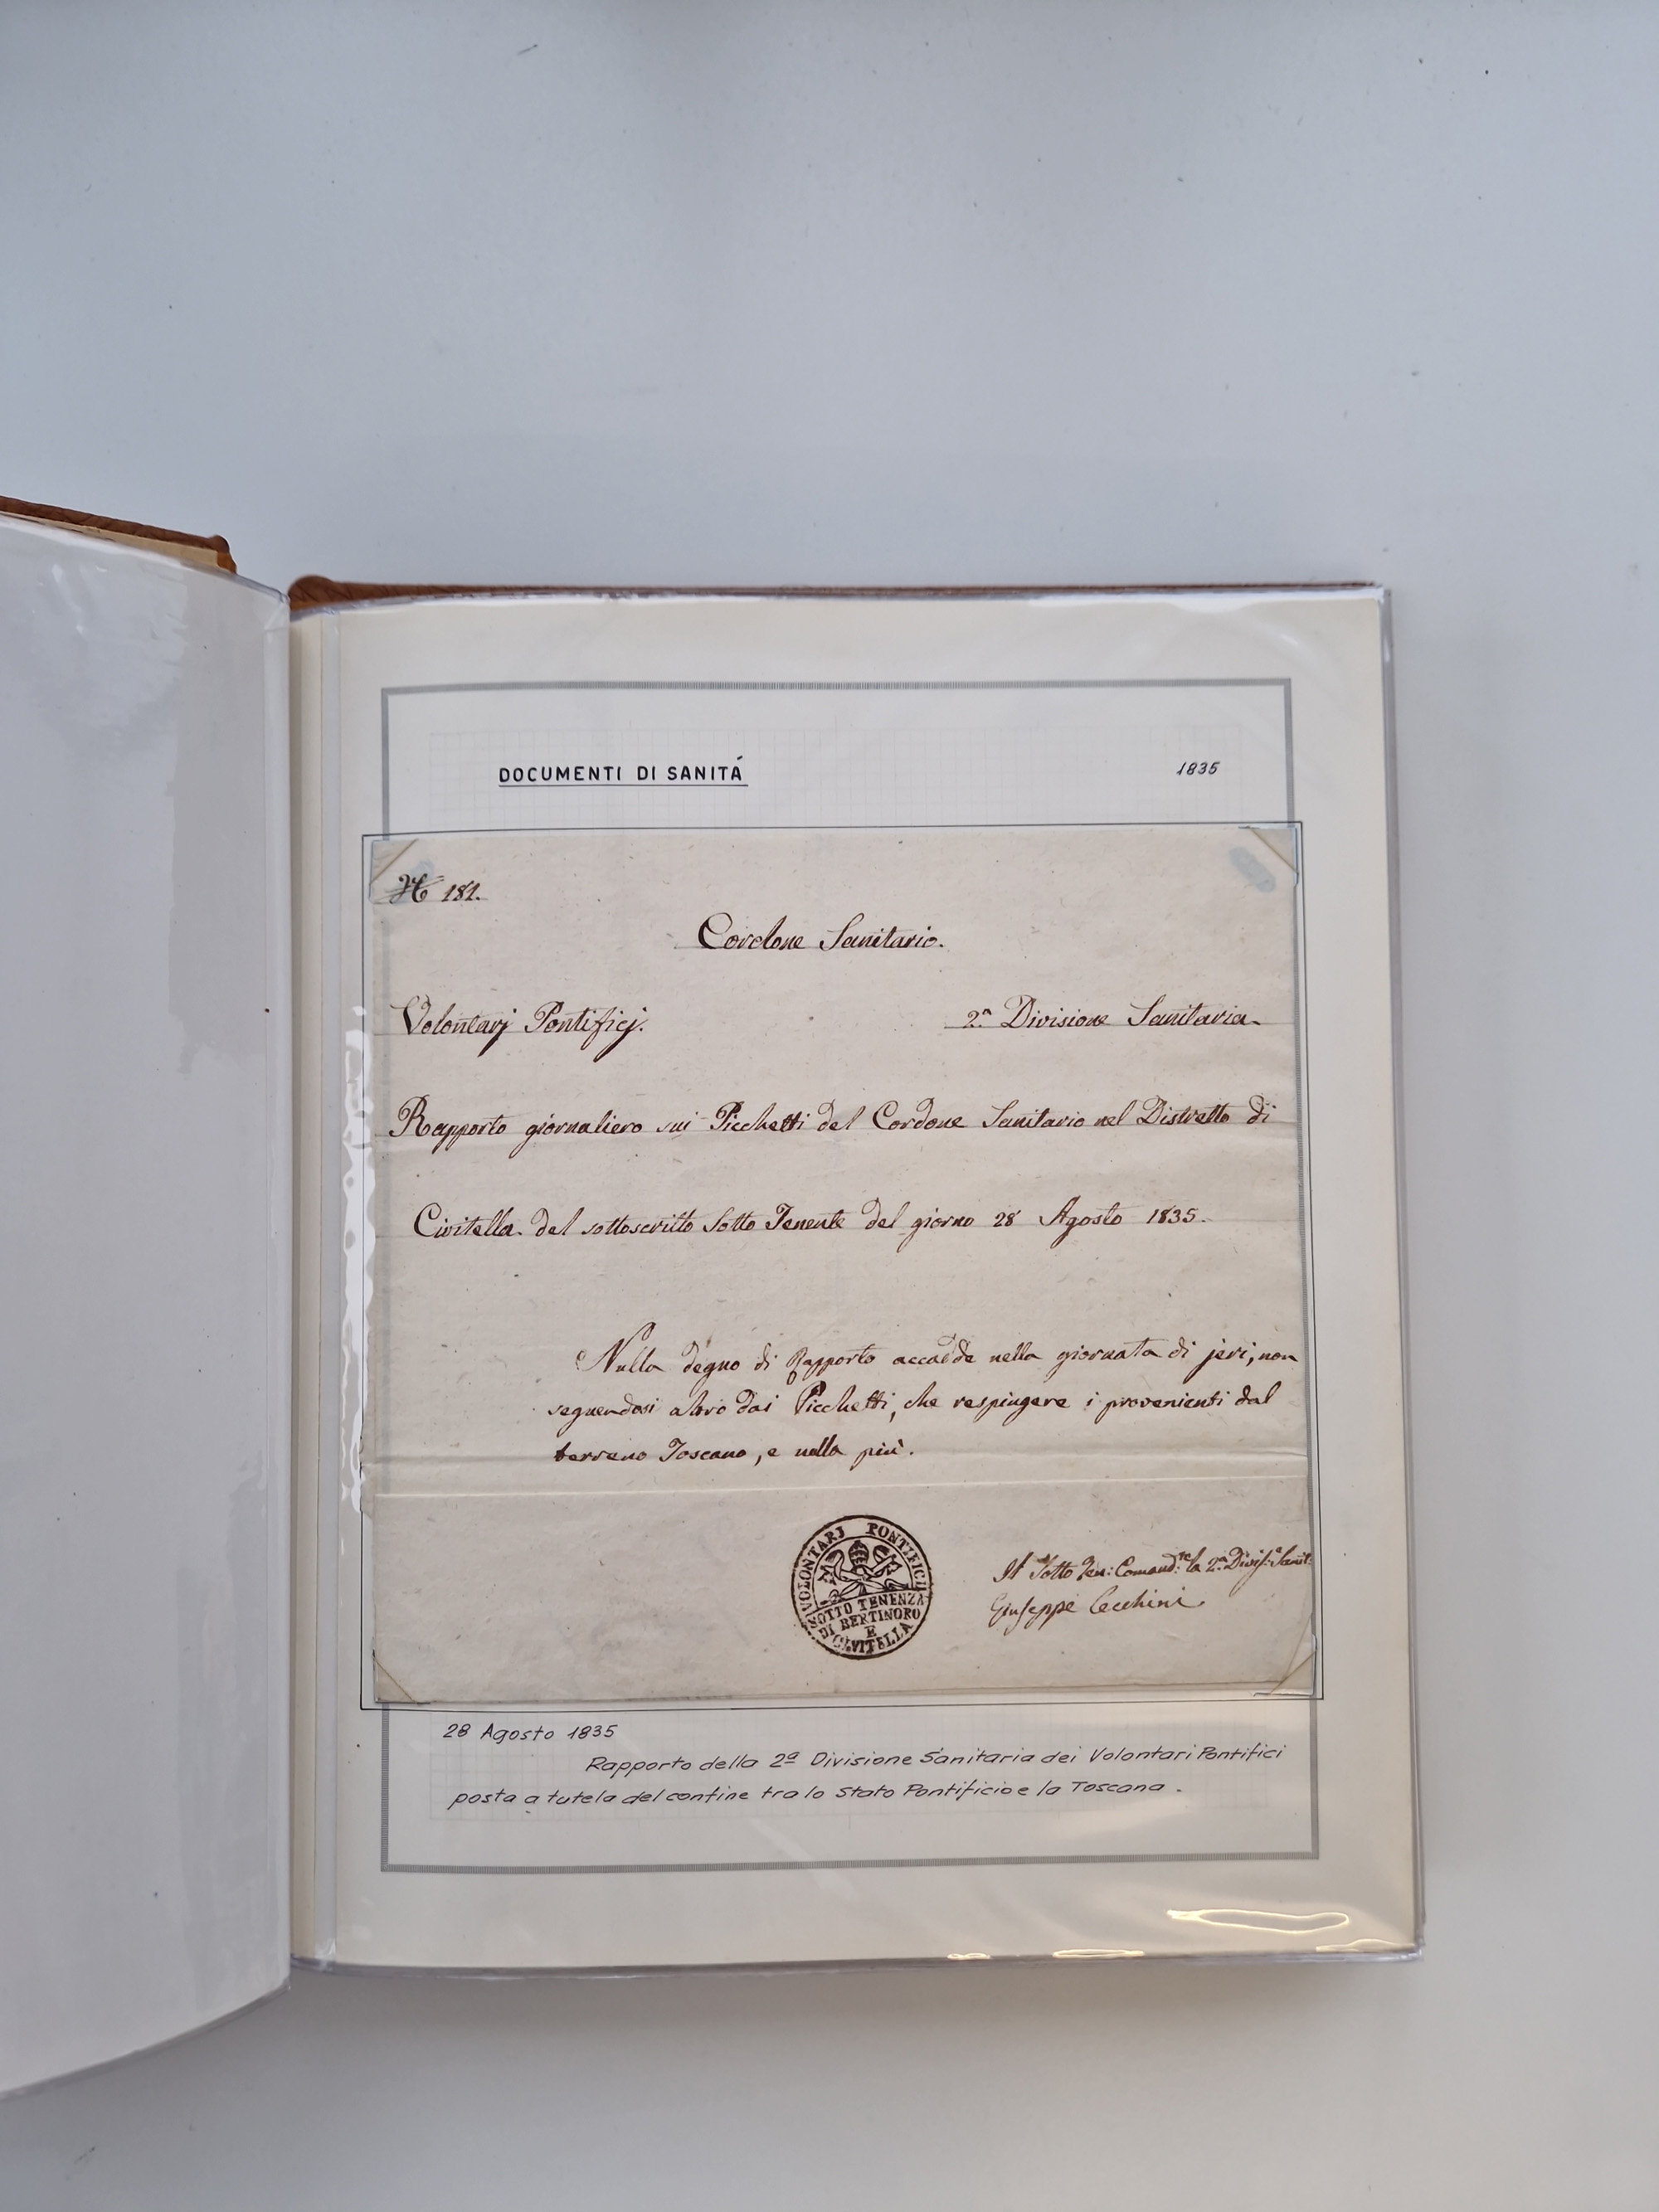 DOCUMENTI DI SANITÁ
1835
N 181.
Cordone Sanitario.
Volontarj Pontificj.
2.ª Divisione Sanitaria.
Rapporto giornaliero sui Picchetti del Cordone Sanitario nel Distretto di
Civitella del sottoscritto Sotto Tenente del giorno 28 Agosto 1835.
Nulla degno di Rapporto accadde nella giornata di jeri, non
seguendosi altro dai Picchetti, che respingere i provenienti dal
terreno Toscano, e nulla più.
VOLONTARJ PONTIFICII
SOTTO TENENZA
DI BERTINORO
E
CIVITELLA
Il Sotto Ten: Comand.te la 2.ª Divis.e Sanit.
Giuseppe Cecchini
28 Agosto 1835
Rapporto della 2ª Divisione Sanitaria dei Volontari Pontifici
posta a tutela del confine tra lo Stato Pontificio e la Toscana.